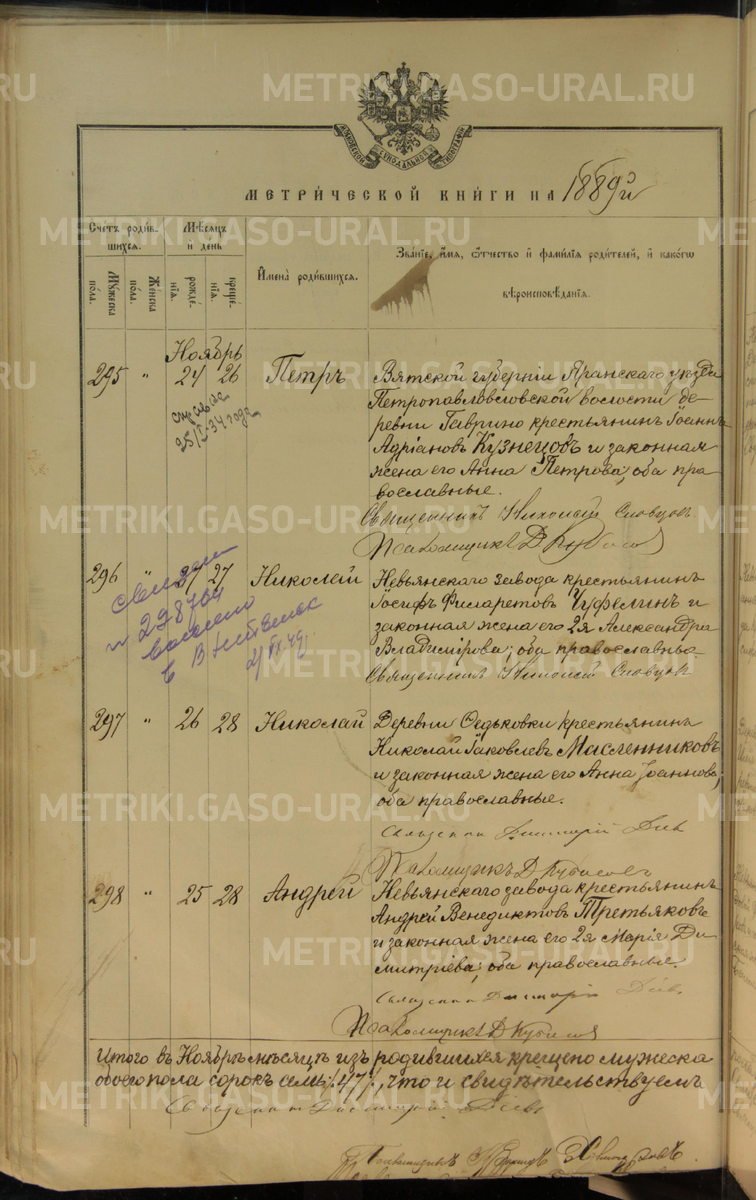 METRIKI.GASO-URAL.RU
МОСКОВСКОЙ СѴНОДАЛЬНОЙ ТИПОГРАФІИ
МЕТРИ́ЧЕСКОЙ КНИ́ГИ НА 1889 г.
Счетъ роди́в-
шихся.
Мѣсяцъ
и день
Мꙋжеска
по́ла.
Же́нска
по́ла.
рожде́-
нія.
креще́-
нія.
Имена̀ роди́вшихся.
Зва́ніе, и́мя, о́тчество и фами́лія роди́телей, и како́гѡ
вѣроисповѣ́данія.
Ноябрь
295 " 24 26 Петръ
Вятской губерніи Яранскаго уѣзда
Петропавловской волости де-
ревни Гаврино крестьянинъ Іоаннъ
Адріановъ Кузнецовъ и законная
жена его Анна Петрова, оба пра-
вославные.
справка
25/I-34 года
Священникъ Николай Словцовъ
Псаломщикъ Д Кубасовъ
296 " 27 27 Николай
Невьянскаго завода крестьянинъ
Іосифъ Филаретовъ Чуфелинъ и
законная жена его 2я Александра
Владимірова; оба православные
Священникъ Николай Словцовъ
в
297 " 26 28 Николай
Деревни Федьковки крестьянинъ
Николай Іаковлевъ Масленниковъ
и законная жена его Анна Іоаннова,
оба православные.
Священникъ Димитрій
Псаломщикъ Д Кубасовъ
298 " 25 28 Андрей
Невьянскаго завода крестьянинъ
Андрей Венедиктовъ Третьяковъ
и законная жена его 2я Марія Ди-
митріева; оба православные.
Священникъ Димитрій
Псаломщикъ Д Кубасовъ
Итого въ Ноябрѣ мѣсяцѣ изъ родившихся крещено мужеска
обоего пола сорокъ семь /:47:/, что и свидѣтельствуемъ
Священникъ Димитрій